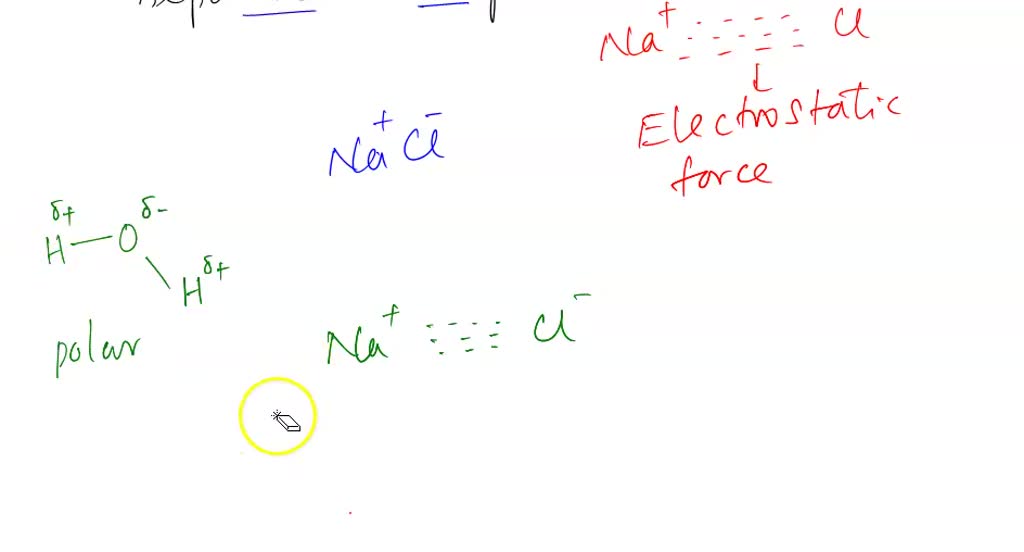 Na⁺ Cl
Electrostatic
force
Na⁺ Cl⁻
δ+ δ-
H O
δ+
H
polar
Na⁺ Cl⁻